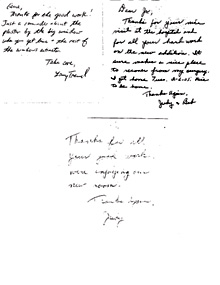 Thanks for the good work!
Just a reminder about the
plaster by the big window
when you get time & the rest of
the windows
Take care,
Dear Jo,
Thanks for your nice
visit at the hospital and
for all your hard work
on the new addition. It
sure makes a nice place
to recover from my surgery.
I got home Tues.
to be home.
Thanks Again,
Judy & Bob
Thanks for all
your good work.
We're enjoying our
new room.
Thanks again,
Judy